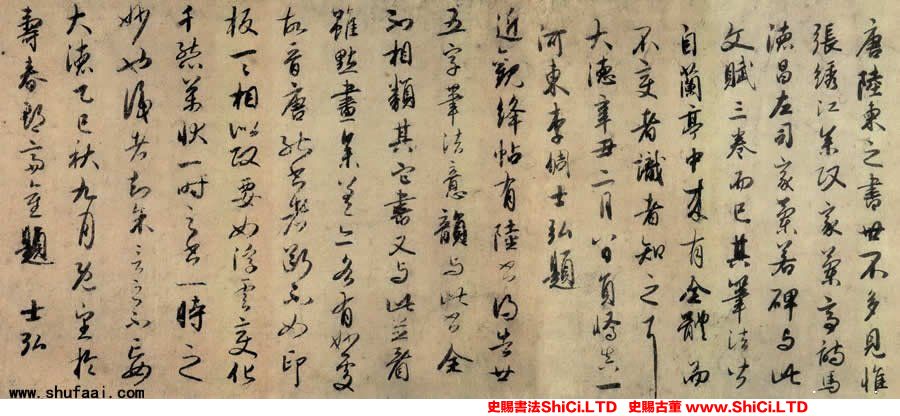 唐陸柬之書世不多見惟
張綉江參政家蘭亭詩馬
德昌左司家蘭若碑与此
文賦三卷而已其筆法皆
自蘭亭中来有全體而
不变者識者知之耳
大德辛丑二月八日員嶠真一
河東李倜士弘題
近觀絳帖有陸書得告廿
五字筆法意韻与此書全
不相類其它書又与此並看
雖點畫參差亦各有妙處
故晉唐能書者斷不如印
板一一相似政要如浮雲變化
千態萬狀一時之書一時之
妙也識者知余言之不妄
大德乙巳秋九月既望於
壽春郡齋重題 士弘
www.shufaai.com
史賜書法ShiCi.LTD 史賜古董 www.ShiCi.LTD